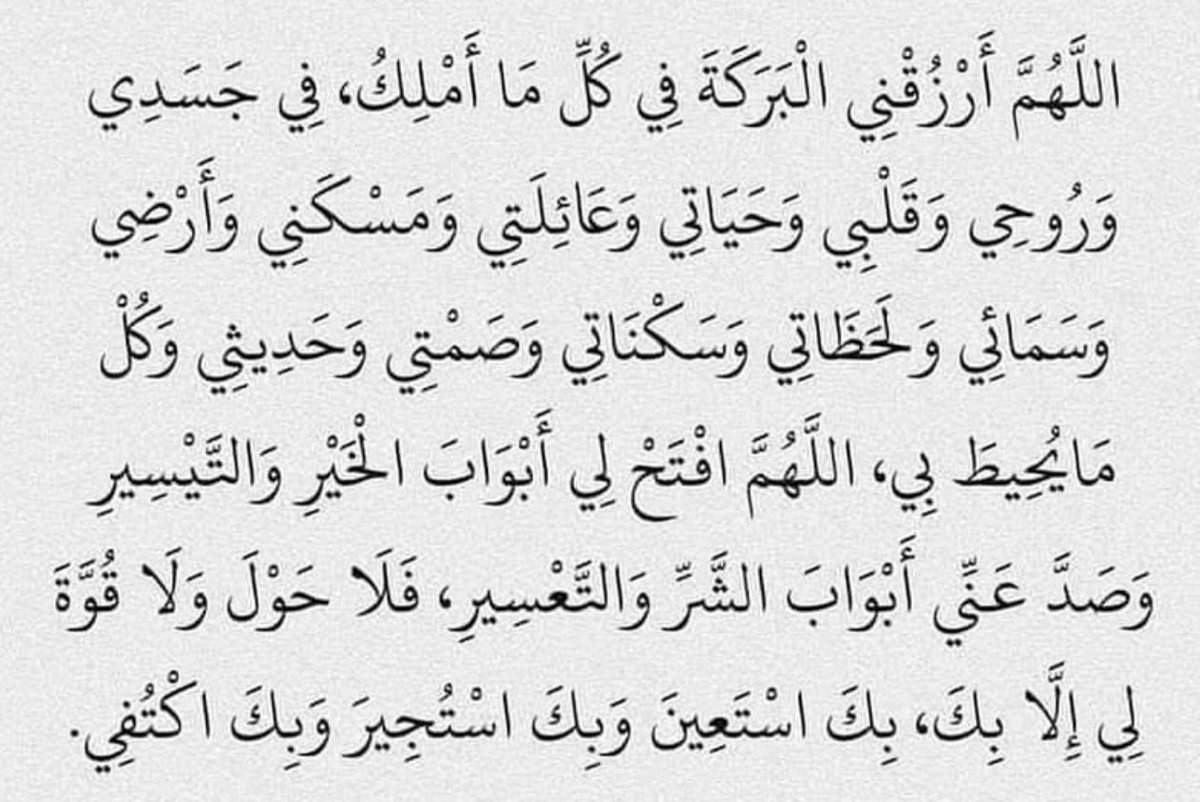 اللَّهُمَّ أَرْزُقْنِي الْبَرَكَةَ فِي كُلِّ مَا أَمْلِكُ، فِي جَسَدِي
وَرُوحِي وَقَلْبِي وَحَيَاتِي وَعَائِلَتِي وَمَسْكَنِي وَأَرْضِي
وَسَمَائِي وَلَحَظَاتِي وَسَكْنَاتِي وَصَمْتِي وَحَدِيثِي وَكُلْ
مَايُحِيطَ بِي، اللَّهُمَّ افْتَحْ لِي أَبْوَابَ الْخَيْرِ وَالتَّيْسِيرِ
وَصَدَّ عَنِّي أَبْوَابَ الشَّرِّ وَالتَّعْسِيرِ، فَلَا حَوْلَ وَلَا قُوَّةَ
لِي إِلَّا بِكَ، بِكَ اسْتَعِينَ وَبِكَ اسْتُجِيرَ وَبِكَ اكْتُفِي.